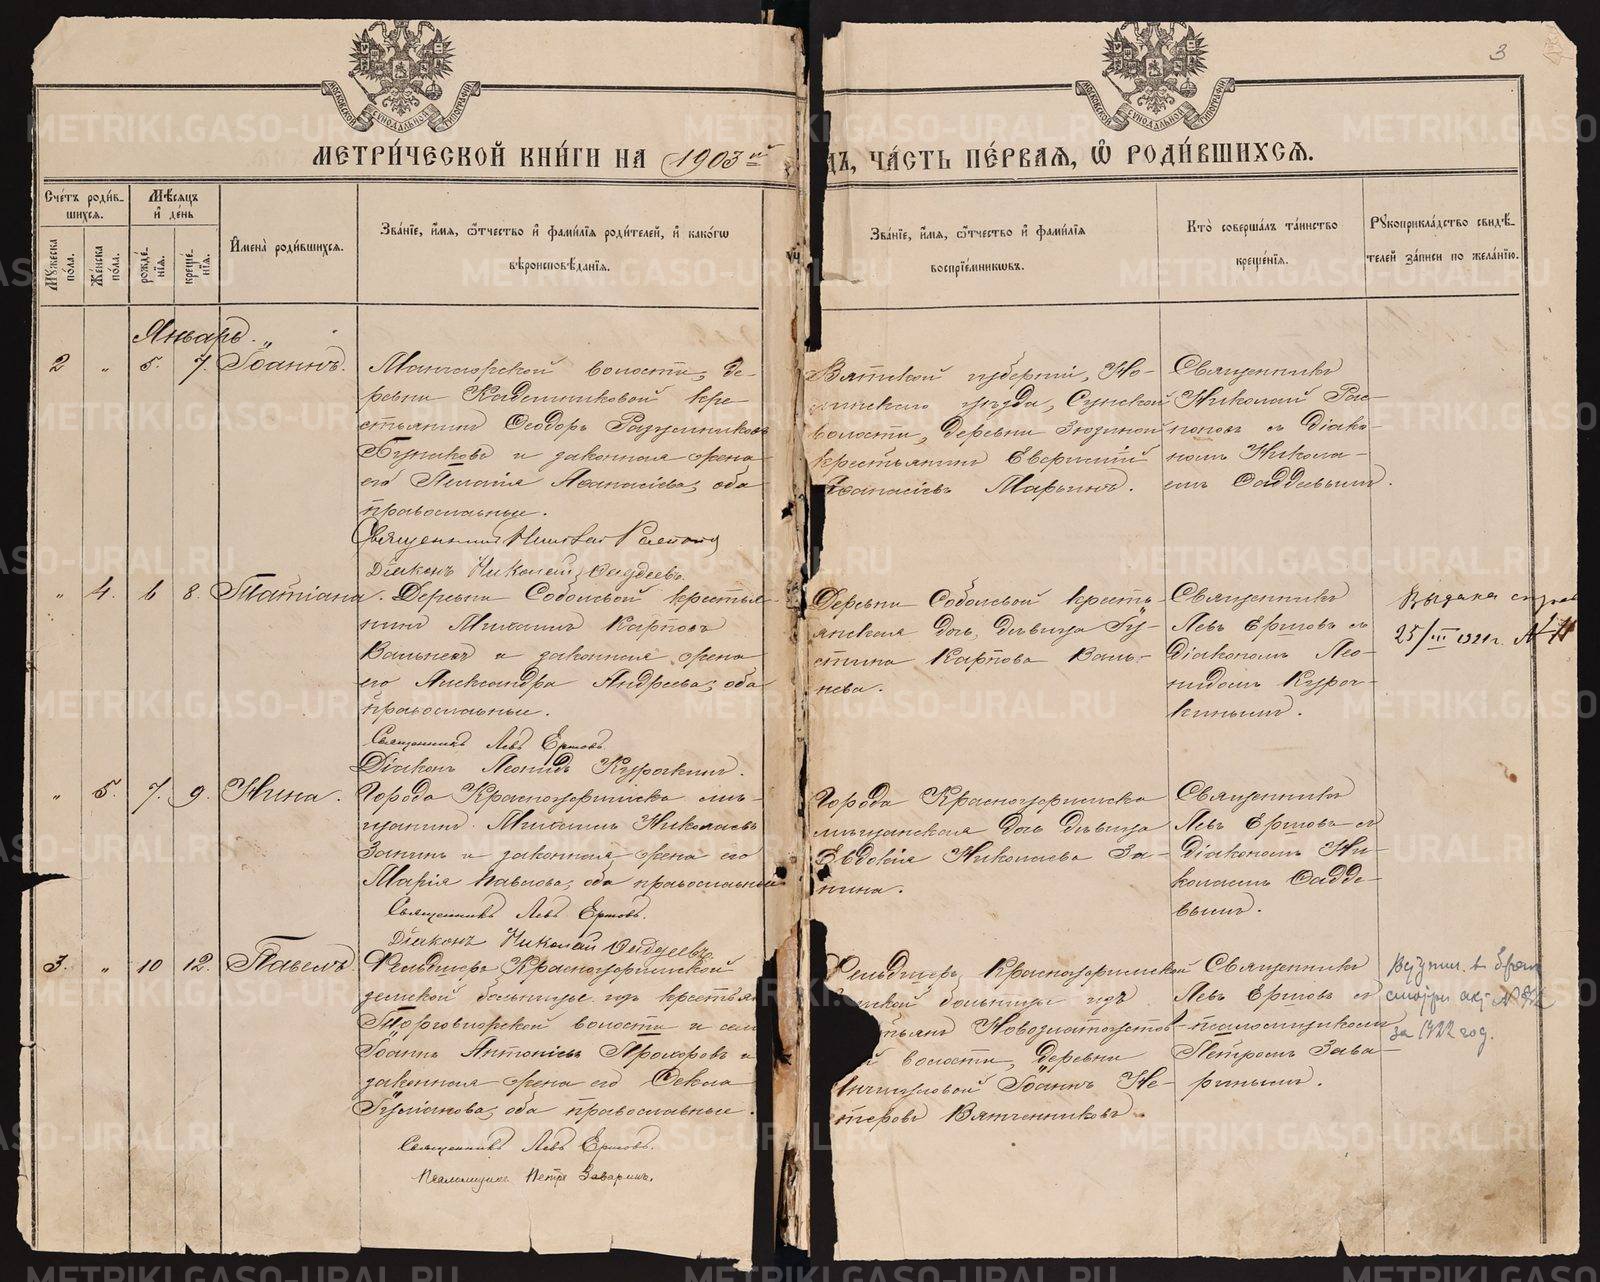 3
МЕТРИ́ЧЕСКОЙ КНИ́ГИ НА 1903й
ДЪ, ЧА́СТЬ ПЕ́РВАЯ, Ѿ РОДИ́ВШИХСЯ.
Сче́тъ роди́в-
шихся.
Мѣ́сяцъ
и҆ де́нь
Мꙋ́жеска по́ла.
Же́нска по́ла.
рожде́-
нїя.
креще́-
нїя.
И҆мена̀ роди́вшихся.
Зва́нїе, и҆́мя, ѻ҆́тчество и҆ фами́лїя роди́телей, и҆ како́гѡ
вѣроисповѣ́данїя.
Зва́нїе, и҆́мя, ѻ҆́тчество и҆ фами́лїя
воспрїе́мникѡвъ.
Кто̀ соверша́лъ та́инство
креще́нїя.
Рꙋкоприкла́дство свидѣ́-
телей за́писи по жела́нїю.
Январь.
2 " 5. 7. Іоаннъ.
волости, де-
ревни Кадешниковой кре-
стьянинъ Ѳеодоръ Разумниковъ
Бунаковъ и законная жена
его Пелагія Аѳанасіева, оба
православные.
Священникъ Николай
Діаконъ Николай Ѳаддеевъ
Вятской губерніи, Но-
линскаго уѣзда, Сунской
волости, деревни Зюзиной
крестьянинъ Евгеній
Аѳанасіевъ Марьинъ.
Священникъ
Николай Рас-
поповъ съ діако-
номъ Никола-
емъ Ѳаддеевымъ.
" 4. 6 8. Татіана.
Деревни Соболевой крестья-
нинъ Михаилъ Карповъ
и законная жена
его Александра Андреева, оба
православные.
Священникъ Левъ Ершовъ.
Діаконъ Леонидъ Курочкинъ.
Деревни Соболевой кресть-
янская дочь, дѣвица Іу-
стина Карпова Валь-
нева.
Священникъ
Левъ Ершовъ съ
діакономъ Лео-
нидомъ Куроч-
кинымъ.
Выдана справ
25/III 1921г. № 11
" 5. 7. 9. Нина.
Города Красноуфимска мѣ-
щанинъ Михаилъ Николаевъ
Занинъ и законная жена его
Марія Павлова, оба православные
Священникъ Левъ Ершовъ.
Діаконъ Николай Ѳаддеевъ
Города Красноуфимска
мѣщанская дочь дѣвица
Евдокія Николаева За-
нина.
Священникъ
Левъ Ершовъ съ
діакономъ Ни-
колаемъ Ѳадде-
вымъ.
3. " 10 12. Павелъ.
Фельдшеръ Красноуфимской
земской больницы изъ крестьянъ
волости и села
Іоаннъ Антоніевъ Прохоровъ и
законная жена его Ѳекла
оба православные.
Священникъ Левъ Ершовъ.
Псаломщикъ Петръ Заваринъ.
Фельдшеръ, Красноуфимской
земской больницы изъ
стьянъ Новозлатоустов-
ой волости, деревни
Іоаннъ Не-
стеровъ Вятченниковъ.
Священникъ
Левъ Ершовъ съ
псаломщикомъ
Петромъ Зава-
ринымъ.
Вступил в брак
смотри акт №
за 1922 год.
METRIKI.GASO-URAL.RU